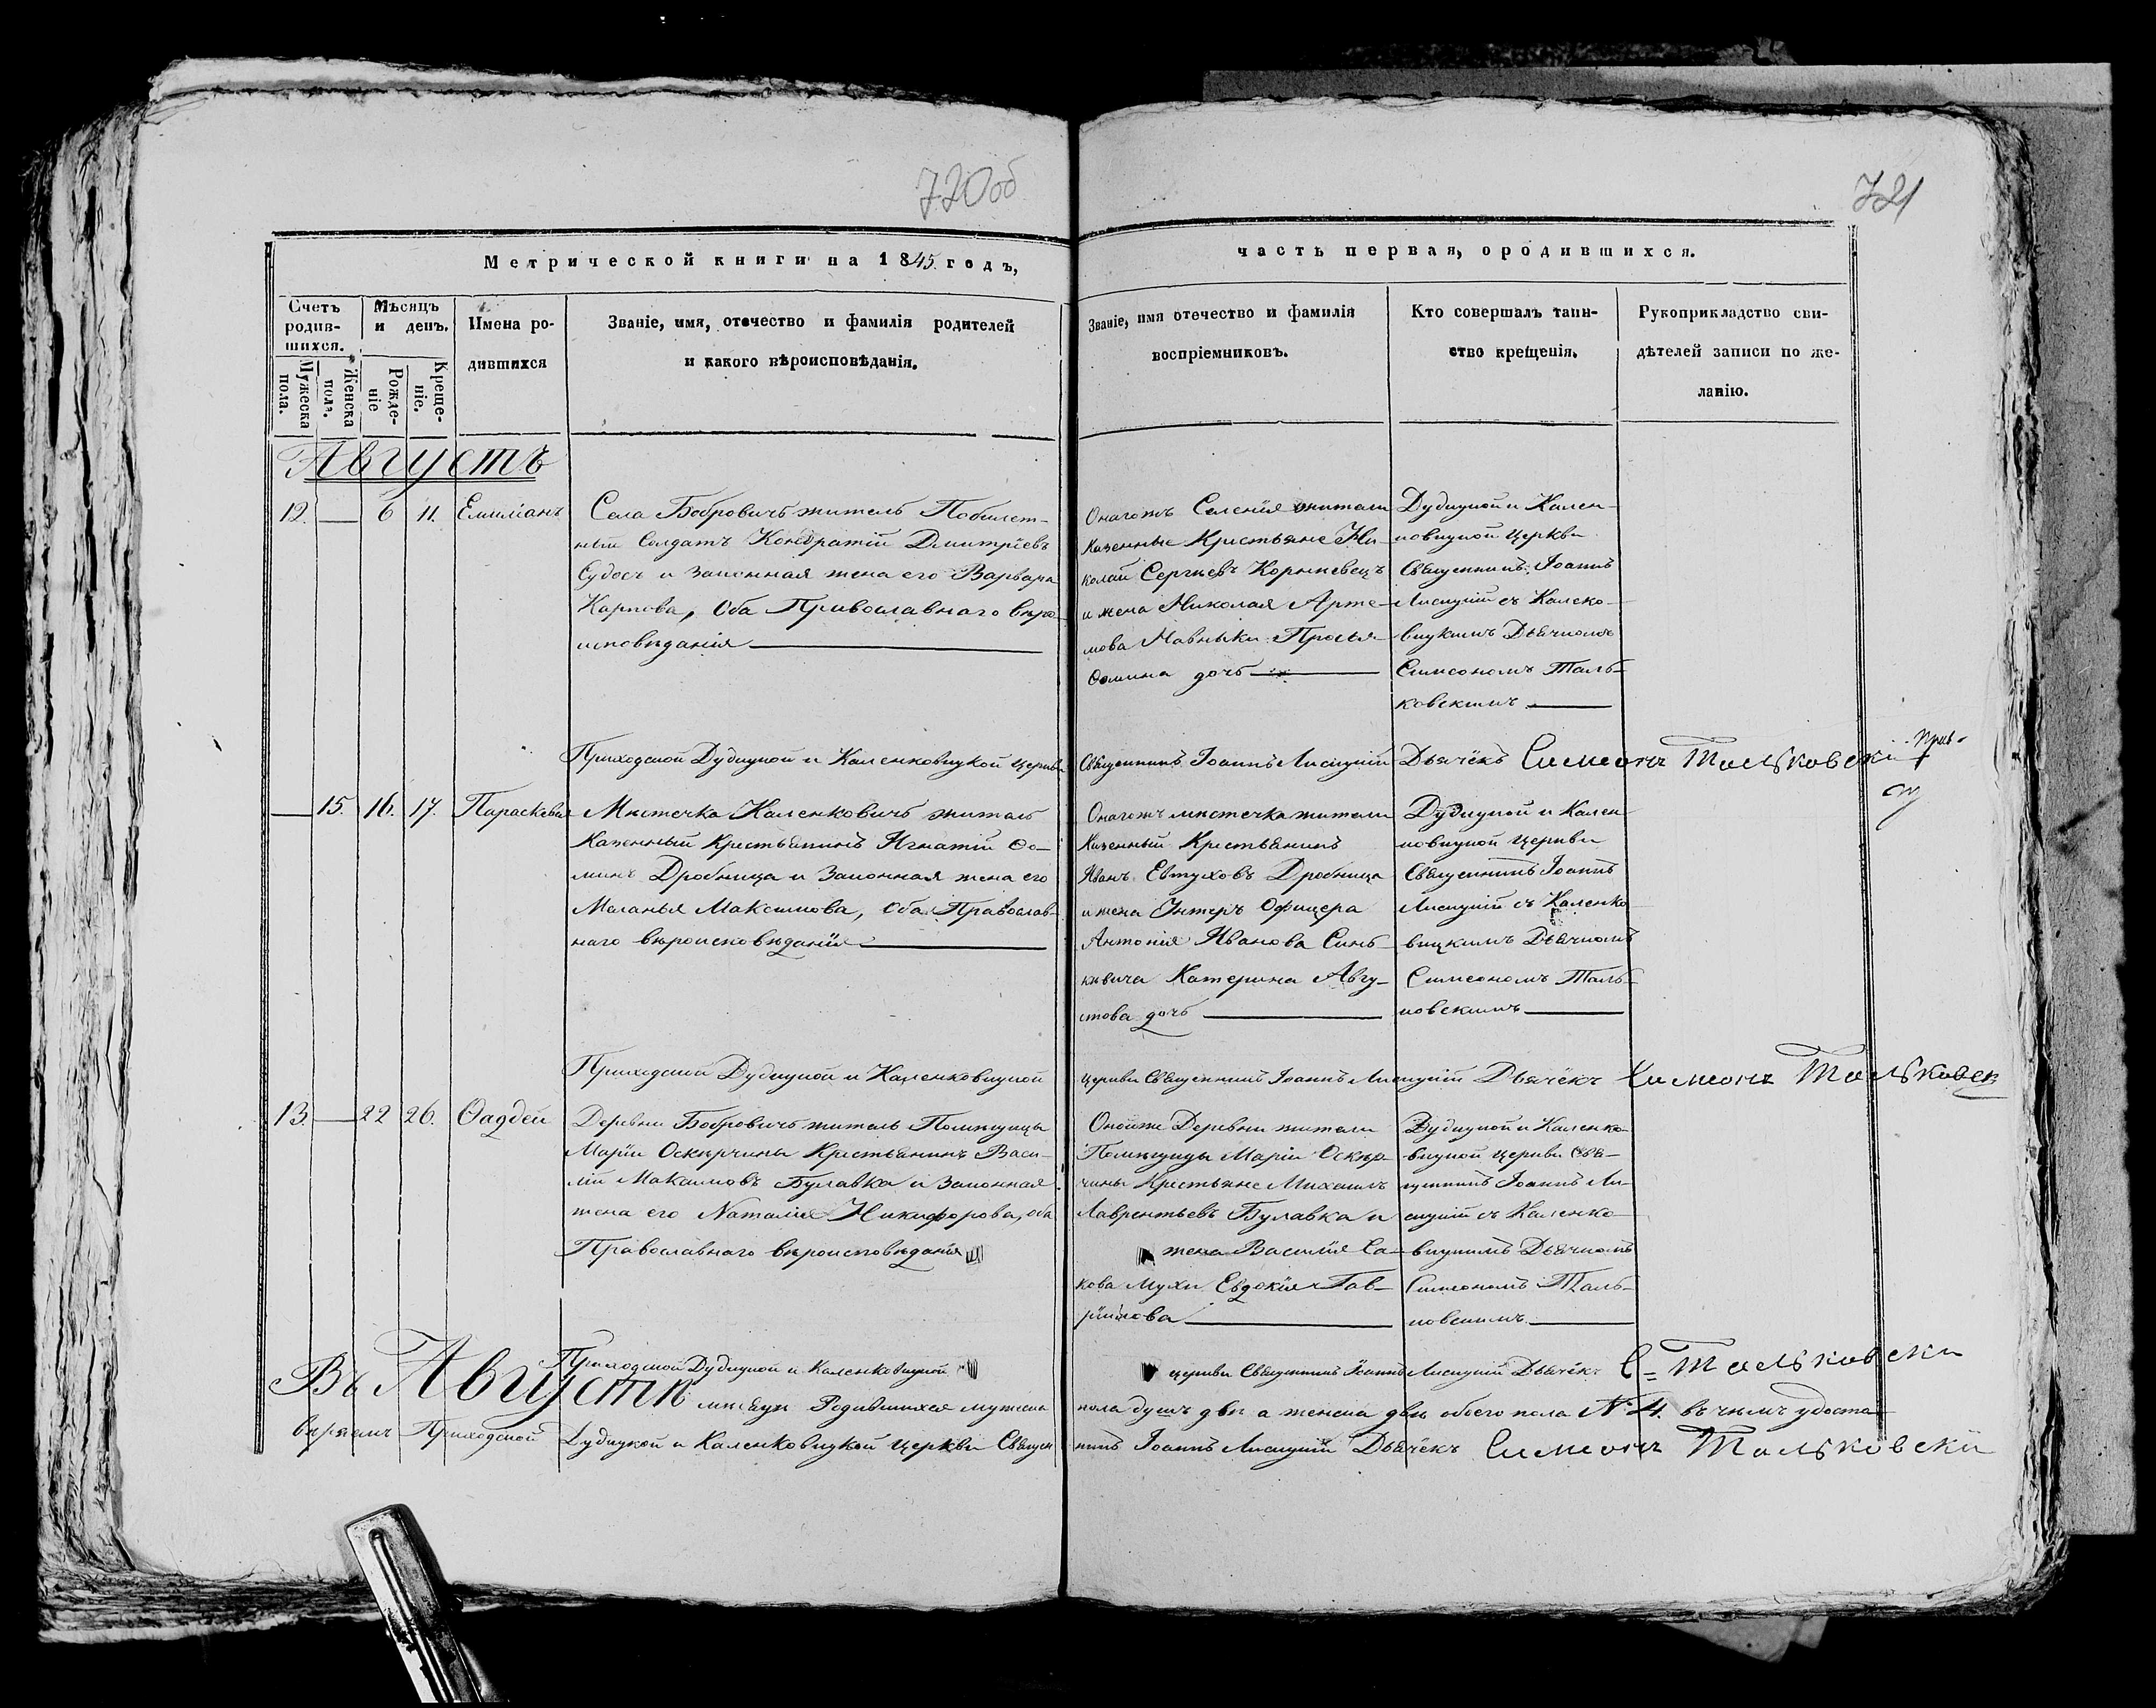 720об
721
Метрической книги на 1845. годъ,
часть первая, ородившихся.
Счетъ родив-шихся.
Мужеска пола.
Женска пола.
Мѣсяцъ и день.
Рожде-ніе
Креще-ніе.
Имена ро-
дившихся
Званіе, имя, отечество и фамилія родителей
и какого вѣроисповѣданія.
Званіе, имя отечество и фамилія
воспріемниковъ.
Кто совершалъ таин-
ство крещенія.
Рукоприкладство сви-
дѣтелей записи по же-
ланію.
Августъ
12. — 6 11. Емиліанъ
Села Бобровичъ житель Побилет-
ный Солдатъ Кондратій Дмитріевъ
Судосъ и Законная жена его Варвара
Карпова, Оба Православнаго вѣро-
исповѣданія
Онагожъ Селенія жители
Казенные Крестьяне Ни-
колай Сергѣевъ
и жена Николая Арте-
мова Прося
Ѳомина дочь
Дудицкой и Кален-
ковицкой Церкви
Священникъ Іоаннъ
Лисицкій съ Калеко-
вицкимъ Дьячкомъ
Симеономъ Таль-
ковскимъ
Приходской Дудицкой и Каленковицкой Церкви
Священникъ Іоаннъ Лисицкій Дьячёкъ Симеонъ Тальковскі
— 15. 16. 17. Параскевія
Мѣстечка Каленковичъ житель
Казенный Крестьянинъ Игнатій Ѳо-
минъ Дробница и Законная жена его
Меланья Максимова, Оба Православ-
наго вѣроисповѣданія
Онагожъ мѣстечка жители
Казенный Крестьянинъ
Иванъ Евтуховъ Дробница
и жена Унтеръ Офицера
Антонія Иванова Синь-
кѣвича Катерина Авгу-
стова дочь
Дудицкой и Кален-
ковицкой Церкви
Священникъ Іоаннъ
Лисицкій съ Каленко-
вицкимъ Дьячкомъ
Симеономъ Таль-
ковскимъ
Приходской Дудицкой и Каленковицкой
Церкви Священникъ Іоаннъ Лисицкій Дьячёкъ Симеонъ Тальковск
13. — 22 26. Ѳаддей
Деревни Бобровичъ житель Помѣщицы
Маріи Оскѣрчины Крестьянинъ Васи-
лій Максимовъ Булавка и Законная
жена его Наталія Никифорова, оба
Православнаго вѣроисповѣданія
Онойже Деревни жители
Помѣщицы Маріи Оскѣр-
чины Крестьяне Михаилъ
Лаврентьевъ Булавка и
жена Василія Са-
кова Мухи Евдокія Гав-
рилова
Дудицкой и Каленко-
вицкой Церкви Свя-
щенникъ Іоаннъ Ли-
сицкій съ Каленко-
вицкимъ Дьячкомъ
Симеономъ Таль-
ковскимъ
Приходской Дудицкой и Каленковицкой
церкви Священникъ Іоаннъ Лисицкій Дьячёкъ С= Тальковски
Въ Августѣ мѣсяцѣ Родившихся мужеска
пола душъ двѣ а женска двѣ обоего пола № 4. въ чѣмъ удосто-
вѣряемъ Приходской Дудицкой и Каленковицкой Церкви Священ-
никъ Іоаннъ Лисицкій Дьячёкъ Симеонъ Тальковскіи